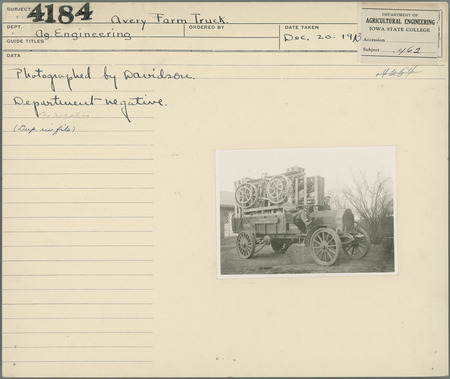 SUBJECT 4184 Avery Farm Truck.
DEPT. Ag. Engineering ORDERED BY DATE TAKEN Dec. 20. 1913
GUIDE TITLES
DEPARTMENT OF
AGRICULTURAL ENGINEERING
IOWA STATE COLLEGE
Accession
Subject 462
DATA
Photographed by Davidson.
Department negative.
(Dup. in file)